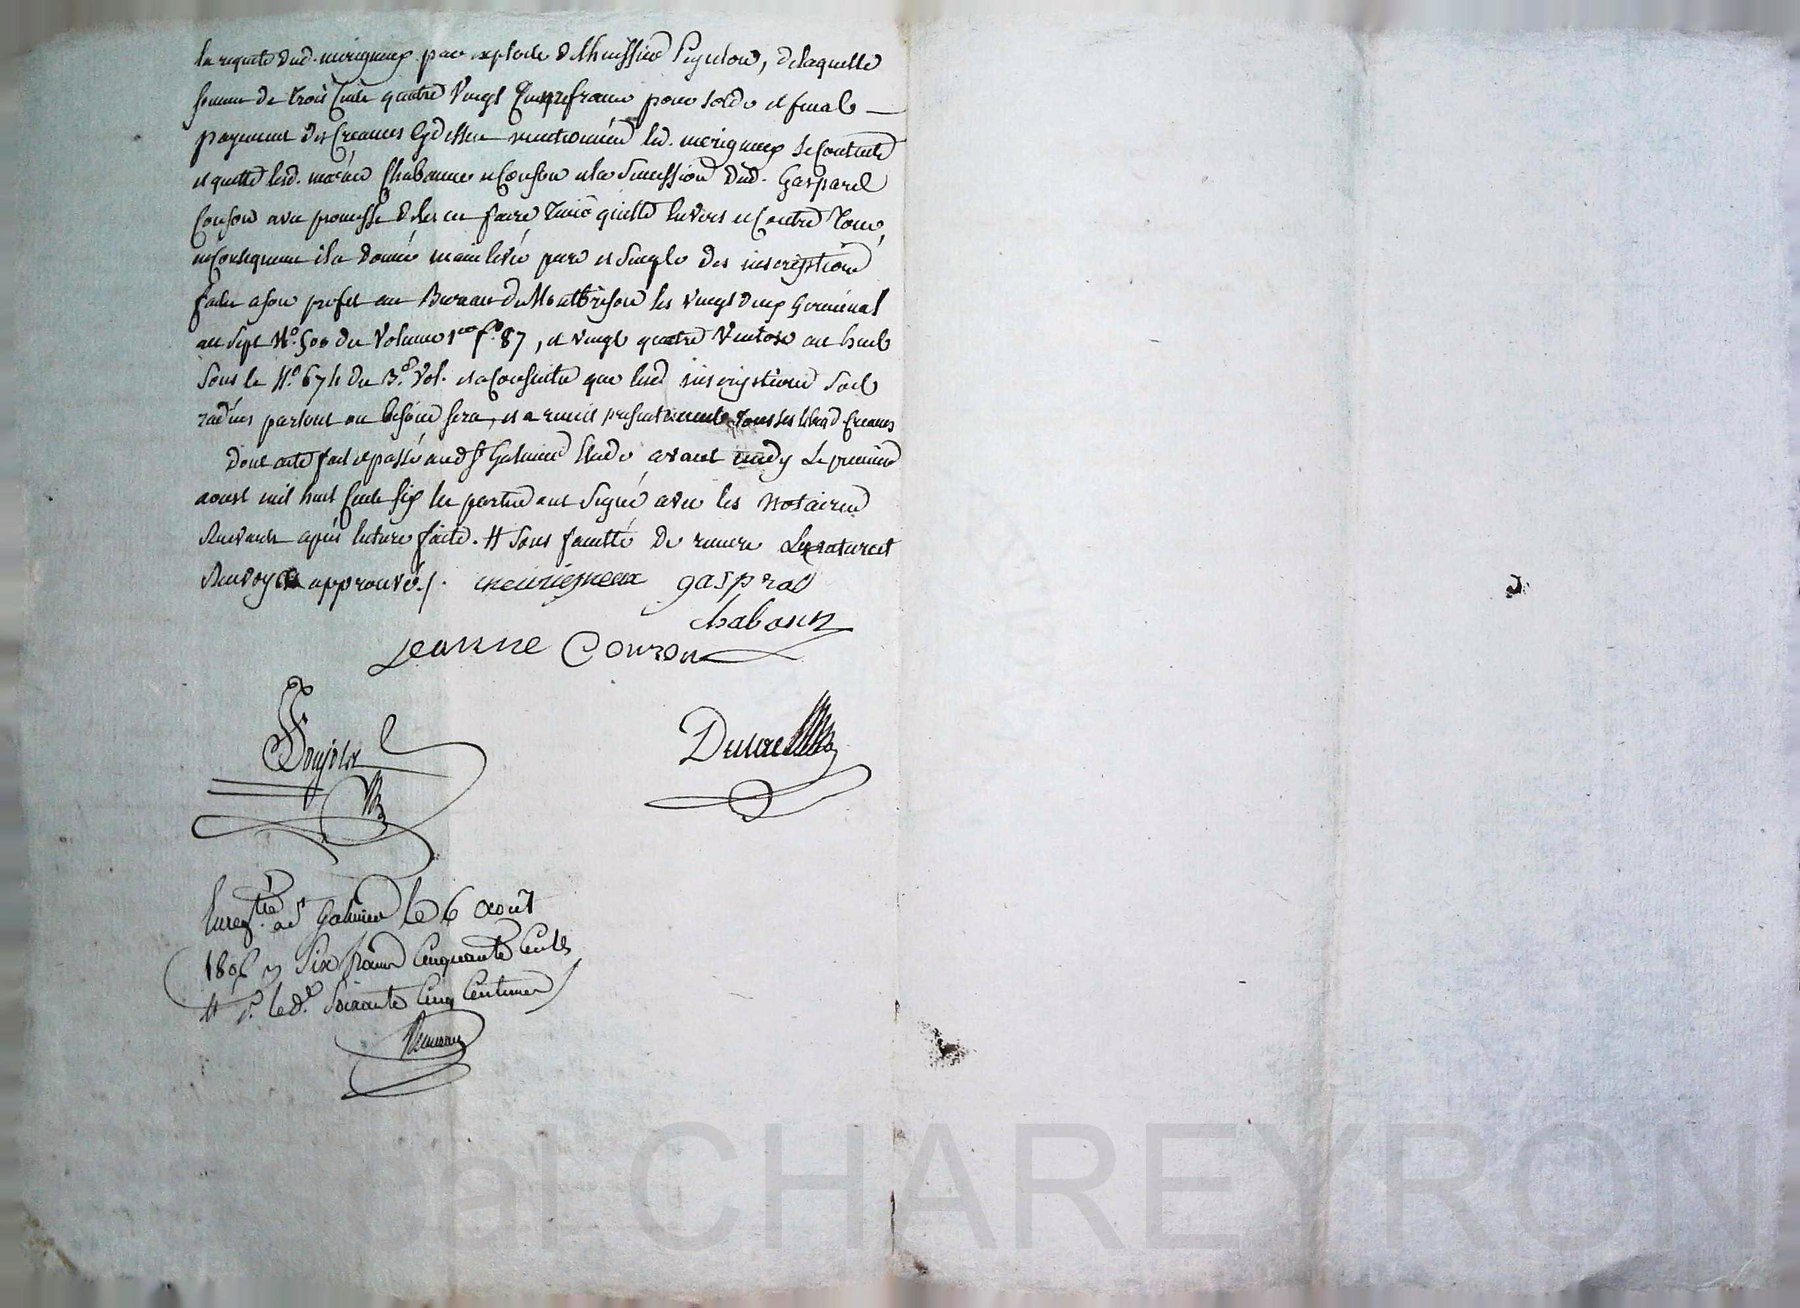 la requete dud. merigneux par exploit de l'huissier Peyulou, de laquelle
somme de trois Cents quatre vingt Quinze francs pour solde et final
payement des Creances Cydessus mentionnées led. merigneux se Contente
et quitte lesd. mariés Chabanne et Couson et la Succession dud. Gaspard
Couson avec promesse de les en faire tenir quitte envers et Contre tous,
en Consequence il a donné main levée pure et simple des inscriptions
faites a son profit au Bureau de Montbrison les vingt deux Germinal
an Sept N.º 500 du Volume 1er f.º 87, et vingt quatre Ventose an huit
Sous le N.º 674 du 3.e Vol. et a Consenti que lesd inscriptions soit
radiées partout ou besoin sera, et a remis presentement tous les titres d Creances
Dont acte fait et passé aud St Galmier Etude avant midy Le premier
aoust mil huit Cents six les parties ont Signé avec les Notaires
Recevants après lecture faite. # Sous faculté de
Renvoy approuvé ./. meirigneux gaspral
chabann
Jeanne Couzon
Dulac
Enreg.tré a St Galmier le 6 Août
1806 Six francs Cinquante Cents
# p. led.t Soixante Cinq Centimes
CHAREYRON